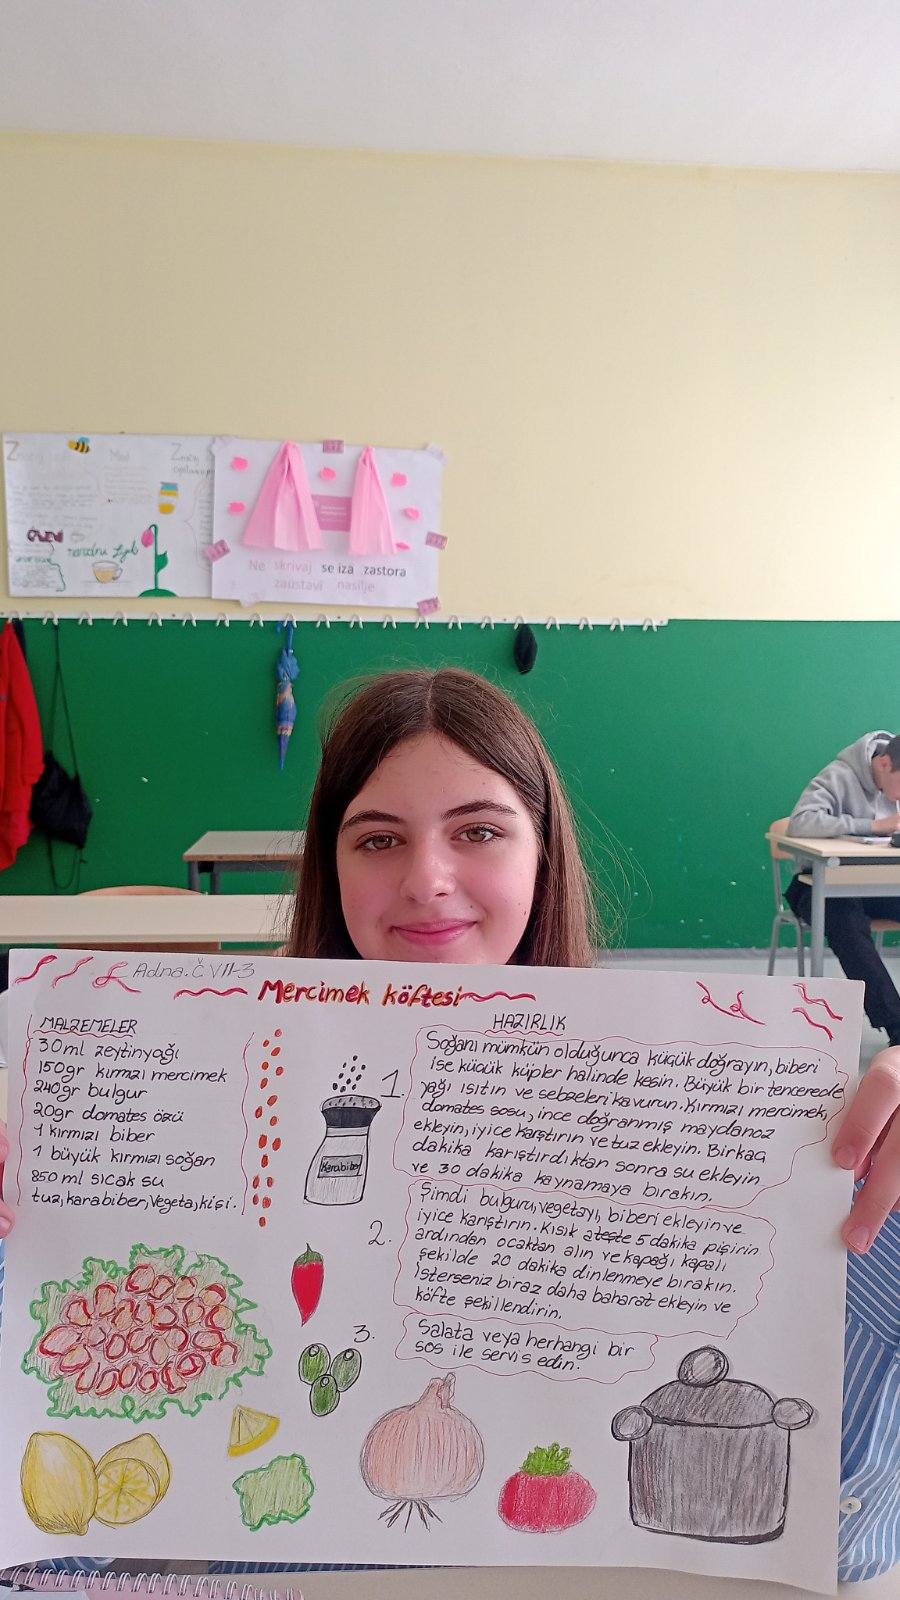 Ne skrivaj se iza zastora
zaustavi nasilje
Adna.Č VII-3
Mercimek köftesi
MALZEMELER
30ml zeytinyağı
150gr kırmızı mercimek
240gr bulgur
20gr domates özü
1 kırmızı biber
1 büyük kırmızı soğan
850 ml sıcak su
tuz, karabiber, Vegeta, kişi.
Karabiber
HAZIRLIK
1.
Soğanı mümkün olduğunca küçük doğrayın, biberi
ise küçük küpler halinde kesin. Büyük bir tencerede
yağı ısıtın ve sebzeleri kavurun. Kırmızı mercimek,
domates sosu, ince doğranmış maydanoz
ekleyin, iyice karıştırın ve tuz ekleyin. Birkaç
dakika karıştırdıktan sonra su ekleyin
ve 30 dakika kaynamaya bırakın.
2.
Şimdi bulguru, vegetayı, biberi ekleyin ve
iyice karıştırın. Kısık ateşte 5 dakika pişirin
ardından ocaktan alın ve kapağı kapalı
şekilde 20 dakika dinlenmeye bırakın.
İsterseniz biraz daha baharat ekleyin ve
köfte şekillendirin.
3.
Salata veya herhangi bir
sos ile servis edin.